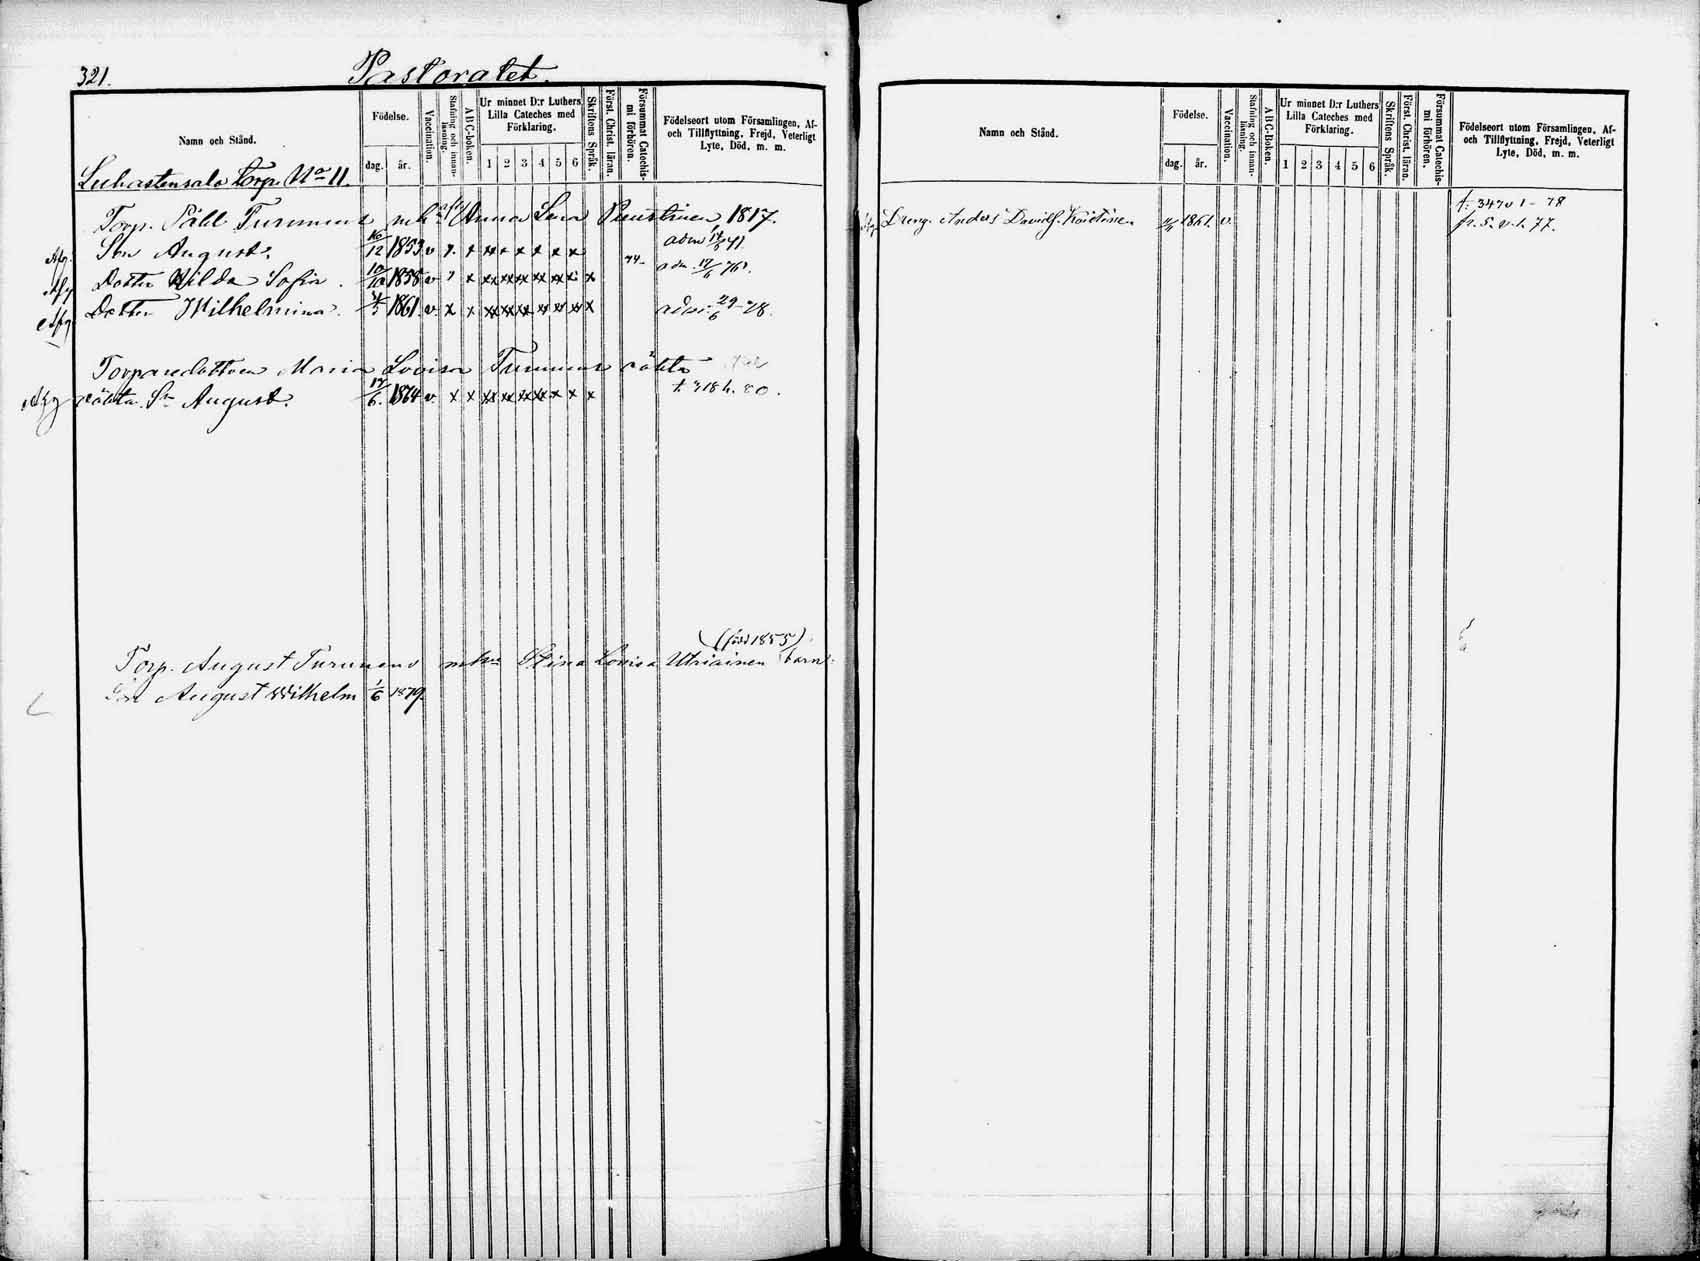 321.
Pastoratet.
Namn och Stånd.
Födelse.
dag. år.
Vaccination.
Stafning och innanläsning.
A-B-C-boken.
Ur minnet D:r Luthers Lilla Cateches med Förklaring.
1 2 3 4 5 6
Skriftens Språk.
Först. Christ. läran.
Försummat Catechismi förhören.
Födelseort utom Församlingen, Af- och Tillflyttning, Frejd, Veterligt Lyte, Död, m. m.
Torp. No 11.
Torp. Påhl Turunens Anna Lena Puustinen 1817.
Afg. Son August. 16/12 1853 v x x x x x x x adm 71.
Afg Dotter Hilda Sofia. 10/10 1858 v x x x x x x x x 74 adm. 17/6 76.
Afg Dotter Wilhelmina. 1861. v. x x x x x x x x x adm. 29/6 78.
Torparedottren Maria Lovisa Turunens oäkta
Afg oäkta Sn August. 17/6. 1864 v. x x x x x x x x x t. 318 h. 80.
(född 1855)
Torp. August Turunens Stina Lovisa Utriainen barn:
Son August Wilhelm 1/6 1879.
Namn och Stånd.
Födelse.
dag. år.
Vaccination.
Stafning och innanläsning.
A-B-C-Boken.
Ur minnet D:r Luthers Lilla Cateches med Förklaring.
1 2 3 4 5 6
Skriftens Språk.
Först. Christ. läran.
Försummat Catechismi förhören.
Födelseort utom Församlingen, Af- och Tillflyttning, Frejd, Veterligt Lyte, Död, m. m.
t: 347 v 1 - 78
Dreng. Anders Davidsf. 1861. v. fr. S. v. 1. 77.